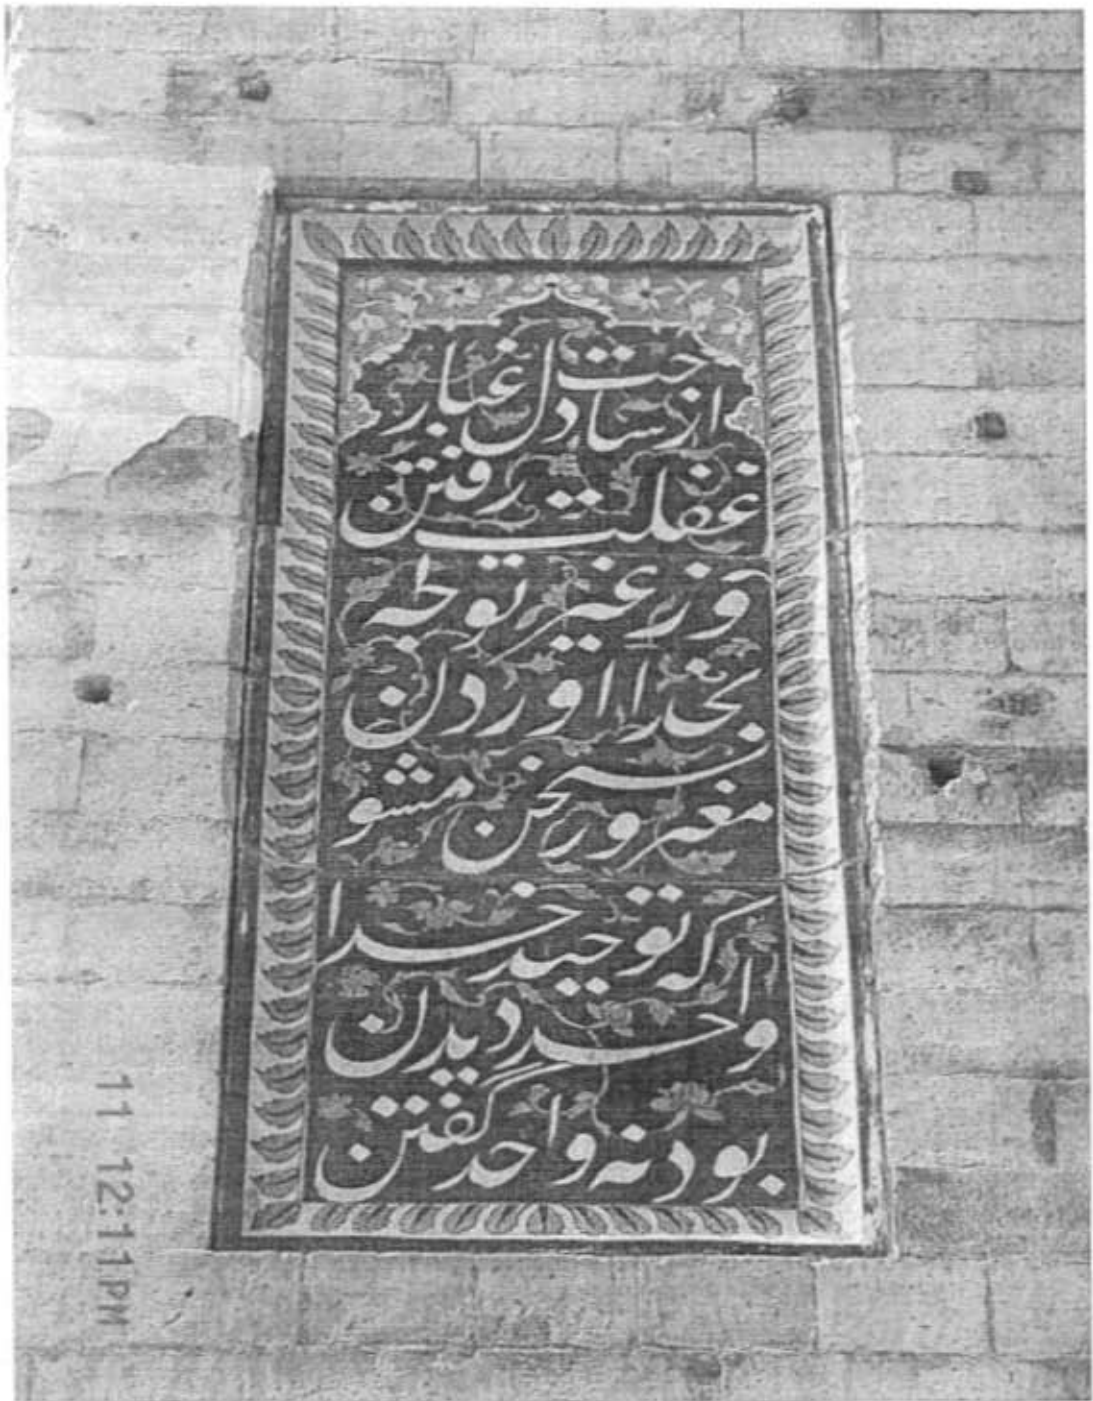 از ساحت دل غبار
غفلت رفتن
وز غیر توجه
بخدا اوردن
مغرور سخن مشو
که توحید خدا
واحد دیدن
بود نه واحد گفتن
11 12:11PM